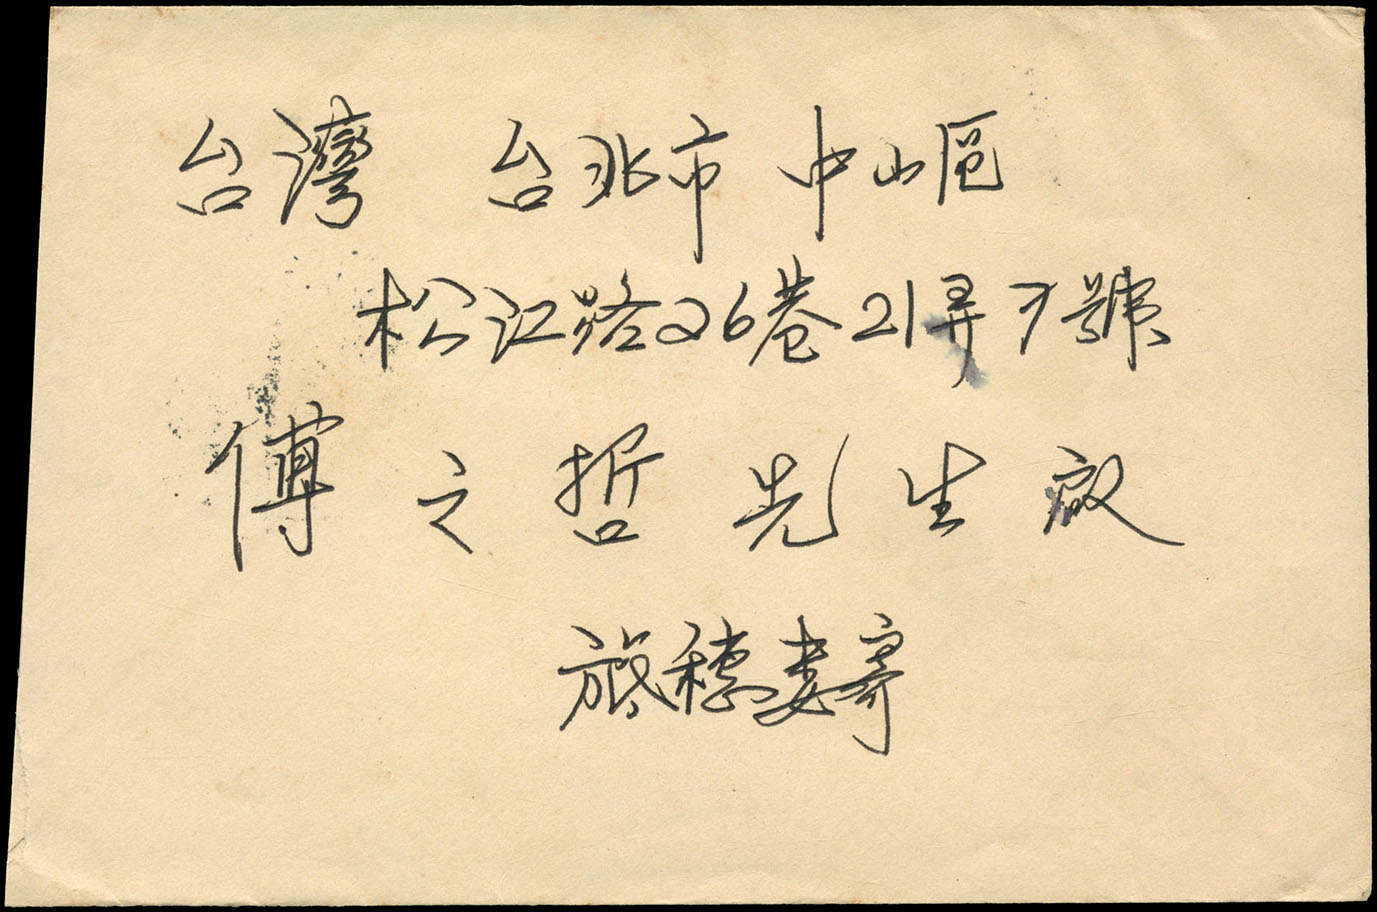 台灣 台北市 中山區
松江路26巷21弄 號
傅之哲先生啟
旅穗婁寄